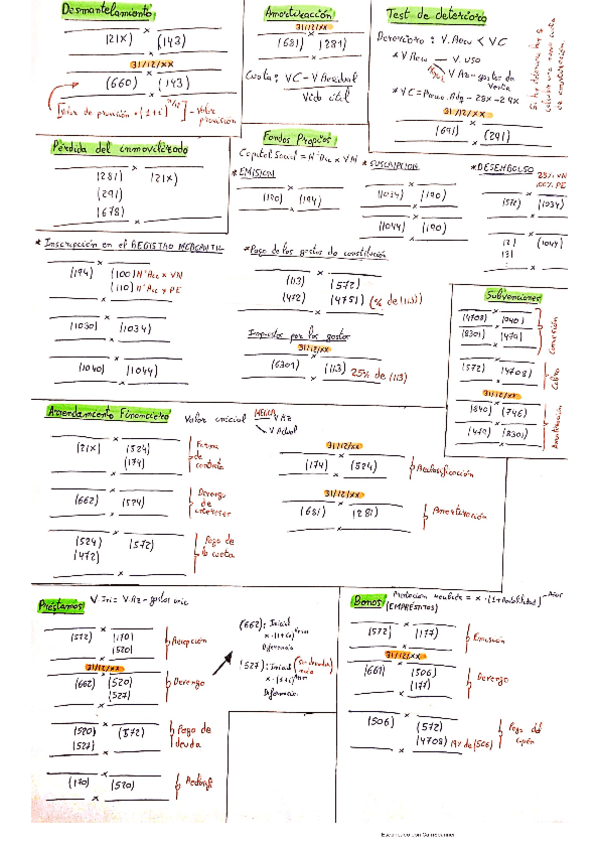 Desmantelamiento
(21X) (143)
31/12/XX
(660) (143)
Amortización
31/12/XX
(681) (281)
Cuota: VC - V Residual
Vida útil
Test de deterioro
Deterioro: V. Recu < VC
* V Recu
V. uso
V Az - gastos de venta
* VC = Precio. Adq - 28X - 29X
31/12/XX
(691) (291)
Pérdida del inmovilizado
(281) (21X)
(291)
(678)
Fondos Propios
Capital Social = Nº Acc x VN
* EMISION
(190) (194)
* SUSCRIPCION
(1034) (190)
(1044) (190)
* DESEMBOLSO
25% VN
100% PE
(572) (1034)
(1044)
* Inscripción en el REGISTRO MERCANTIL
(194) (100) Nº Acc x VN
(110) Nº Acc x PE
(1030) (1034)
(1040) (1044)
* Pago de los gastos de constitución
(113) (572)
(472) (4751) (% de (113))
Impuestos por los gastos
31/12/XX
(6301) (113) 25% de (113)
Subvenciones
(4708) (940)
(8301) (479)
Concesión
(572) (4708)
Cobro
31/12/XX
(840) (746)
(479) (8301)
Amortización
Arrendamiento Financiero
Valor inicial
V Az
V Actual
(21X) (524)
(174)
Firma de contrato
(662) (524)
Devengo de intereses
(524) (572)
(472)
Pago de la cuota
31/12/XX
(174) (524)
Reclasificación
31/12/XX
(681) (281)
Amortización
Préstamos
V. Ini = V. Az - gastos inic
(572) (170)
(520)
Recepción
31/12/XX
(662) (520)
(527)
Devengo
(520) (572)
(527)
Pago de deuda
(170) (520)
Reclasif
(662): Inicial
x · (1+i)
Diferencia
(527): Inicial
x · (1+i)
Diferencia
Bonos
(EMPRÉSTITOS)
(572) (177)
Emisión
31/12/XX
(661) (506)
(177)
Devengo
(506) (572)
(4708) 19% de (506)
Pago del cupón